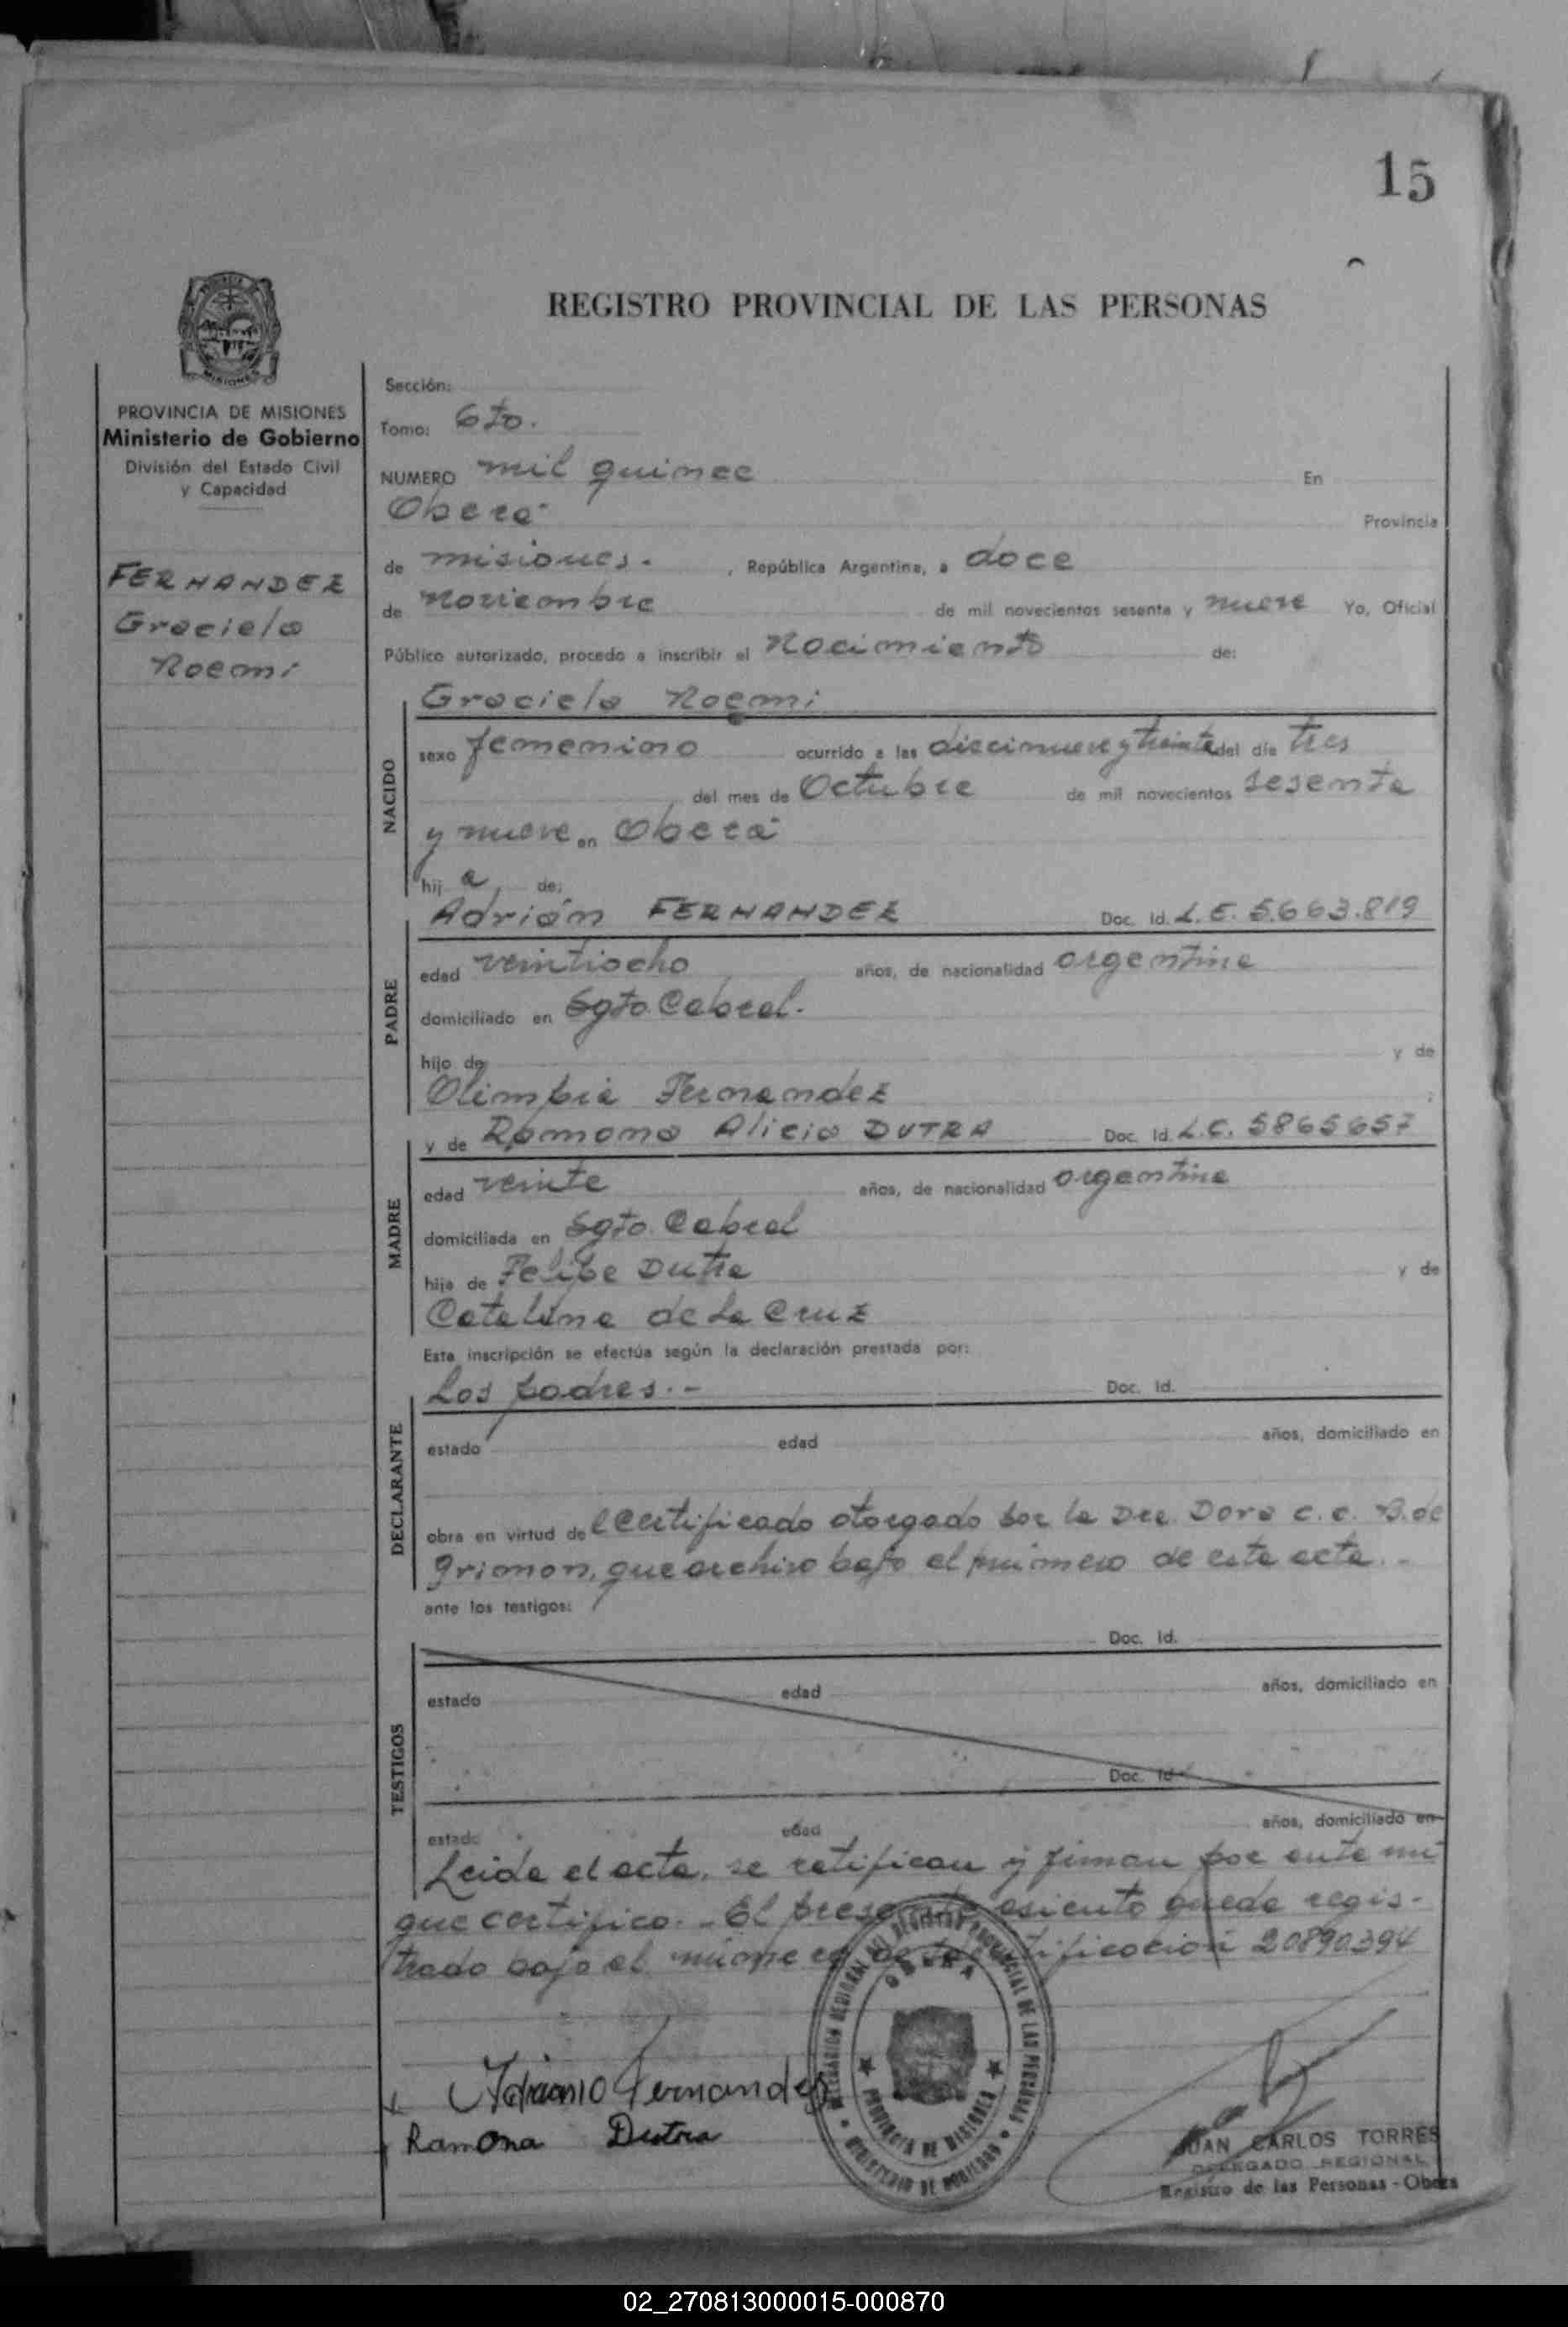 15
REGISTRO PROVINCIAL DE LAS PERSONAS
MISIONES
PROVINCIA DE MISIONES
Ministerio de Gobierno
División del Estado Civil
y Capacidad
FERNANDEZ
Graciela
Noemi
Sección:
Tomo: 6to.
NUMERO mil quince En
Oberá Provincia
de misiones. , República Argentina, a doce
de Noviembre de mil novecientos sesenta y nueve Yo, Oficial
Público autorizado, procedo a inscribir el Nacimiento de:
Graciela Noemi
NACIDO
sexo femenino ocurrido a las diecinueve y treinta del día tres
del mes de Octubre de mil novecientos sesenta
y nueve en Oberá
hij a de:
Adrián FERNANDEZ Doc. Id. L.E. 5.663.819
PADRE
edad veintiocho años, de nacionalidad argentina
domiciliado en Sgto. Cabral.
hijo de y de
Olimpia Fernandez
y de Ramona Alicia DUTRA Doc. Id. L.C. 5865657
MADRE
edad veinte años, de nacionalidad argentina
domiciliada en Sgto. Cabral
hija de Felipe Dutra y de
Catalina de La Cruz
Esta inscripción se efectúa según la declaración prestada por:
Los padres.- Doc. Id.
DECLARANTE
estado edad años, domiciliado en
obra en virtud del certificado otorgado por la Dra. Dora C. C. B. de
Grimon, que archivo bajo el número de esta acta.-
ante los testigos:
Doc. Id.
TESTIGOS
estado edad años, domiciliado en
Doc. Id.
estado edad años, domiciliado en
Leida el acta, se ratifican y firman por ante mi
que certifico.- El presente asiento queda regis-
trado bajo el número de identificación 20890394
DELEGACION REGIONAL DEL REGISTRO PROVINCIAL DE LAS PERSONAS
OBERA
PROVINCIA DE MISIONES
MINISTERIO DE GOBIERNO
Adriano Fernandez
Ramona Dutra
JUAN CARLOS TORRES
DELEGADO REGIONAL
Registro de las Personas - Obera
02_270813000015-000870